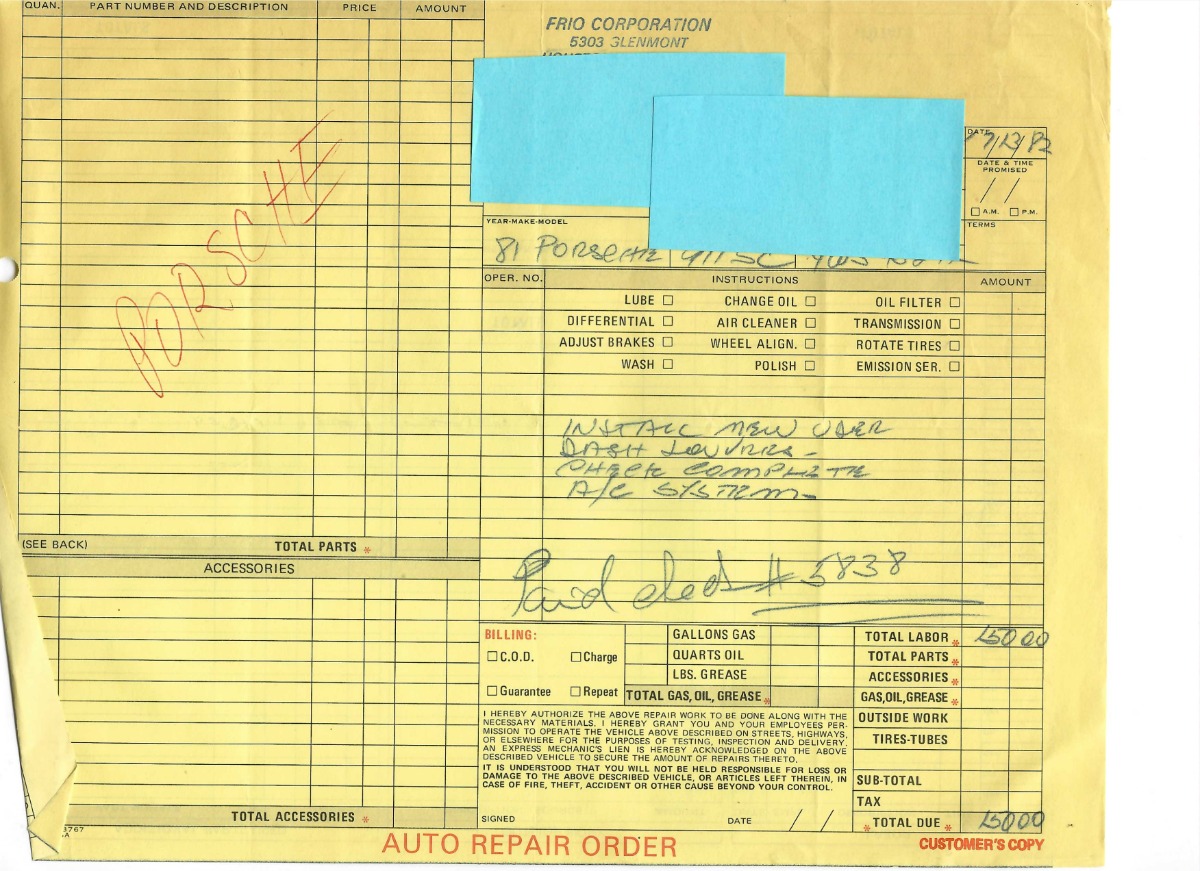 QUAN. PART NUMBER AND DESCRIPTION PRICE AMOUNT
FRIO CORPORATION
5303 GLENMONT
DATE 7/13/82
DATE & TIME PROMISED
/ /
☐ A.M. ☐ P.M.
TERMS
YEAR-MAKE-MODEL
81 PORSCHE 911 SC
PORSCHE
OPER. NO. INSTRUCTIONS AMOUNT
LUBE ☐ CHANGE OIL ☐ OIL FILTER ☐
DIFFERENTIAL ☐ AIR CLEANER ☐ TRANSMISSION ☐
ADJUST BRAKES ☐ WHEEL ALIGN. ☐ ROTATE TIRES ☐
WASH ☐ POLISH ☐ EMISSION SER. ☐
INSTALL NEW UDER
DASH LOUVRRS -
CHECK COMPLETE
A/C SYSTEM -
Paid check # 5838
(SEE BACK) TOTAL PARTS *
ACCESSORIES
TOTAL ACCESSORIES *
BILLING:
☐ C.O.D. ☐ Charge
☐ Guarantee ☐ Repeat
GALLONS GAS
QUARTS OIL
LBS. GREASE
TOTAL GAS, OIL, GREASE *
TOTAL LABOR * 150 00
TOTAL PARTS *
ACCESSORIES *
GAS, OIL, GREASE *
OUTSIDE WORK
TIRES-TUBES
SUB-TOTAL
TAX
* TOTAL DUE * 150 00
I HEREBY AUTHORIZE THE ABOVE REPAIR WORK TO BE DONE ALONG WITH THE
NECESSARY MATERIALS. I HEREBY GRANT YOU AND YOUR EMPLOYEES PER-
MISSION TO OPERATE THE VEHICLE ABOVE DESCRIBED ON STREETS, HIGHWAYS,
OR ELSEWHERE FOR THE PURPOSES OF TESTING, INSPECTION AND DELIVERY.
AN EXPRESS MECHANIC'S LIEN IS HEREBY ACKNOWLEDGED ON THE ABOVE
DESCRIBED VEHICLE TO SECURE THE AMOUNT OF REPAIRS THERETO.
IT IS UNDERSTOOD THAT YOU WILL NOT BE HELD RESPONSIBLE FOR LOSS OR
DAMAGE TO THE ABOVE DESCRIBED VEHICLE, OR ARTICLES LEFT THEREIN, IN
CASE OF FIRE, THEFT, ACCIDENT OR OTHER CAUSE BEYOND YOUR CONTROL.
SIGNED DATE / /
AUTO REPAIR ORDER
CUSTOMER'S COPY